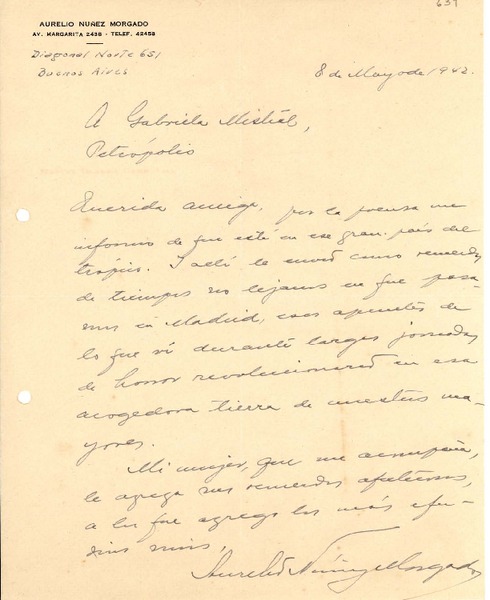 637
AURELIO NUÑEZ MORGADO
AV. MARGARITA 2438 - TELEF. 42458
Diagonal Norte 651
Buenos Aires
8 de Mayo de 1942.
A Gabriela Mistral,
Petrópolis
Querida amiga, por la prensa me
informo de que está en ese gran país del
trópico. I allí le envío como recuerdo
de tiempos no lejanos en que pasa-
mos en Madrid, esos apuntes de
lo que ví durante largas jornadas
de horror revolucionario en esa
acogedora tierra de nuestros ma-
yores.
Mi mujer, que me acompaña,
le agrega sus recuerdos afectuosos,
a los que agrego los más efu-
sivos míos,
Aurelio Núñez Morgado